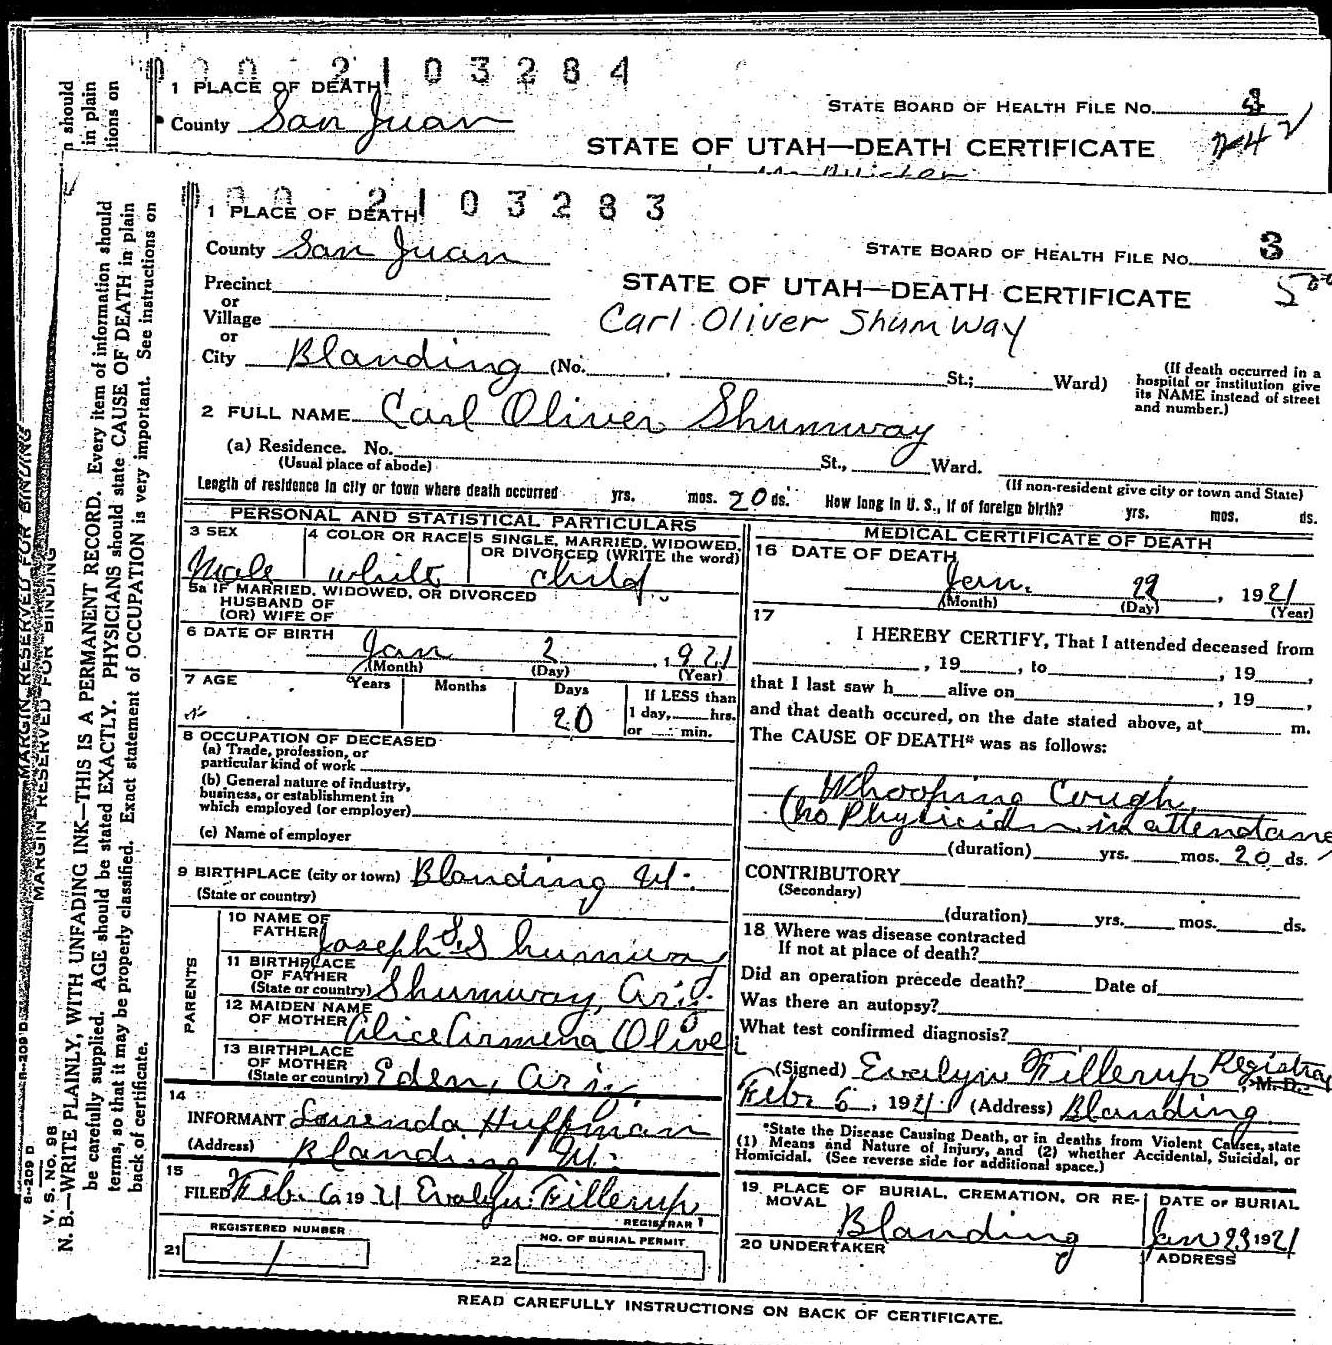 000 2103284
1 PLACE OF DEATH
County San Juan
STATE BOARD OF HEALTH FILE NO.
STATE OF UTAH—DEATH CERTIFICATE
242
n should
in plain
tions on
000 2103283
1 PLACE OF DEATH
County San Juan
STATE BOARD OF HEALTH FILE NO. 3
Precinct
STATE OF UTAH—DEATH CERTIFICATE
or
Village
Carl Oliver Shumway
or
City Blanding (No. , St.; Ward)
(If death occurred in a
hospital or institution give
its NAME instead of street
and number.)
2 FULL NAME Carl Oliver Shumway
(a) Residence. No. St., Ward.
(Usual place of abode)
(If non-resident give city or town and State)
Length of residence in city or town where death occurred yrs. mos. 20 ds. How long in U. S., if of foreign birth? yrs. mos. ds.
PERSONAL AND STATISTICAL PARTICULARS
3 SEX
Male
4 COLOR OR RACE
white
5 SINGLE, MARRIED, WIDOWED,
OR DIVORCED (WRITE the word)
child.
5a IF MARRIED, WIDOWED, OR DIVORCED
HUSBAND OF
(OR) WIFE OF
6 DATE OF BIRTH
Jan 2, 1921
(Month) (Day) (Year)
7 AGE Years Months Days If LESS than
20 1 day, hrs.
or min.
8 OCCUPATION OF DECEASED
(a) Trade, profession, or
particular kind of work
(b) General nature of industry,
business, or establishment in
which employed (or employer)
(c) Name of employer
9 BIRTHPLACE (city or town) Blanding Ut.
(State or country)
PARENTS
10 NAME OF
FATHER Joseph S. Shumway
11 BIRTHPLACE
OF FATHER
(State or country) Shumway, Ariz.
12 MAIDEN NAME
OF MOTHER Alice Armena Olive
13 BIRTHPLACE
OF MOTHER
(State or country) Eden, Ariz.
14
INFORMANT Lourenda Huffman
(Address) Blanding Ut.
15
FILED Feb. 6 1921 Evalyn Fillerup
REGISTRAR
REGISTERED NUMBER
21 1
NO. OF BURIAL PERMIT
22
MEDICAL CERTIFICATE OF DEATH
16 DATE OF DEATH
Jan. 22, 1921
(Month) (Day) (Year)
17
I HEREBY CERTIFY, That I attended deceased from
, 19 , to , 19 ,
that I last saw h alive on , 19 ,
and that death occured, on the date stated above, at m.
The CAUSE OF DEATH* was as follows:
Whooping Cough
(no Physician in attendance
(duration) yrs. mos. 20 ds.
CONTRIBUTORY
(Secondary)
(duration) yrs. mos. ds.
18 Where was disease contracted
If not at place of death?
Did an operation precede death? Date of
Was there an autopsy?
What test confirmed diagnosis?
(Signed) Evalyn Fillerup Registrar, M. D.
Feb. 6, 1921 (Address) Blanding
*State the Disease Causing Death, or in deaths from Violent Causes, state
(1) Means and Nature of Injury, and (2) whether Accidental, Suicidal, or
Homicidal. (See reverse side for additional space.)
19 PLACE OF BURIAL, CREMATION, OR RE-
MOVAL
Blanding
DATE OF BURIAL
Jan 23 1921
20 UNDERTAKER
ADDRESS
READ CAREFULLY INSTRUCTIONS ON BACK OF CERTIFICATE.
MARGIN RESERVED FOR BINDING
MARGIN RESERVED FOR BINDING
8-209 D
8-209 D
V. S. No. 98
N. B.—WRITE PLAINLY, WITH UNFADING INK—THIS IS A PERMANENT RECORD. Every item of information should
be carefully supplied. AGE should be stated EXACTLY. PHYSICIANS should state CAUSE OF DEATH in plain
terms, so that it may be properly classified. Exact statement of OCCUPATION is very important. See instructions on
back of certificate.